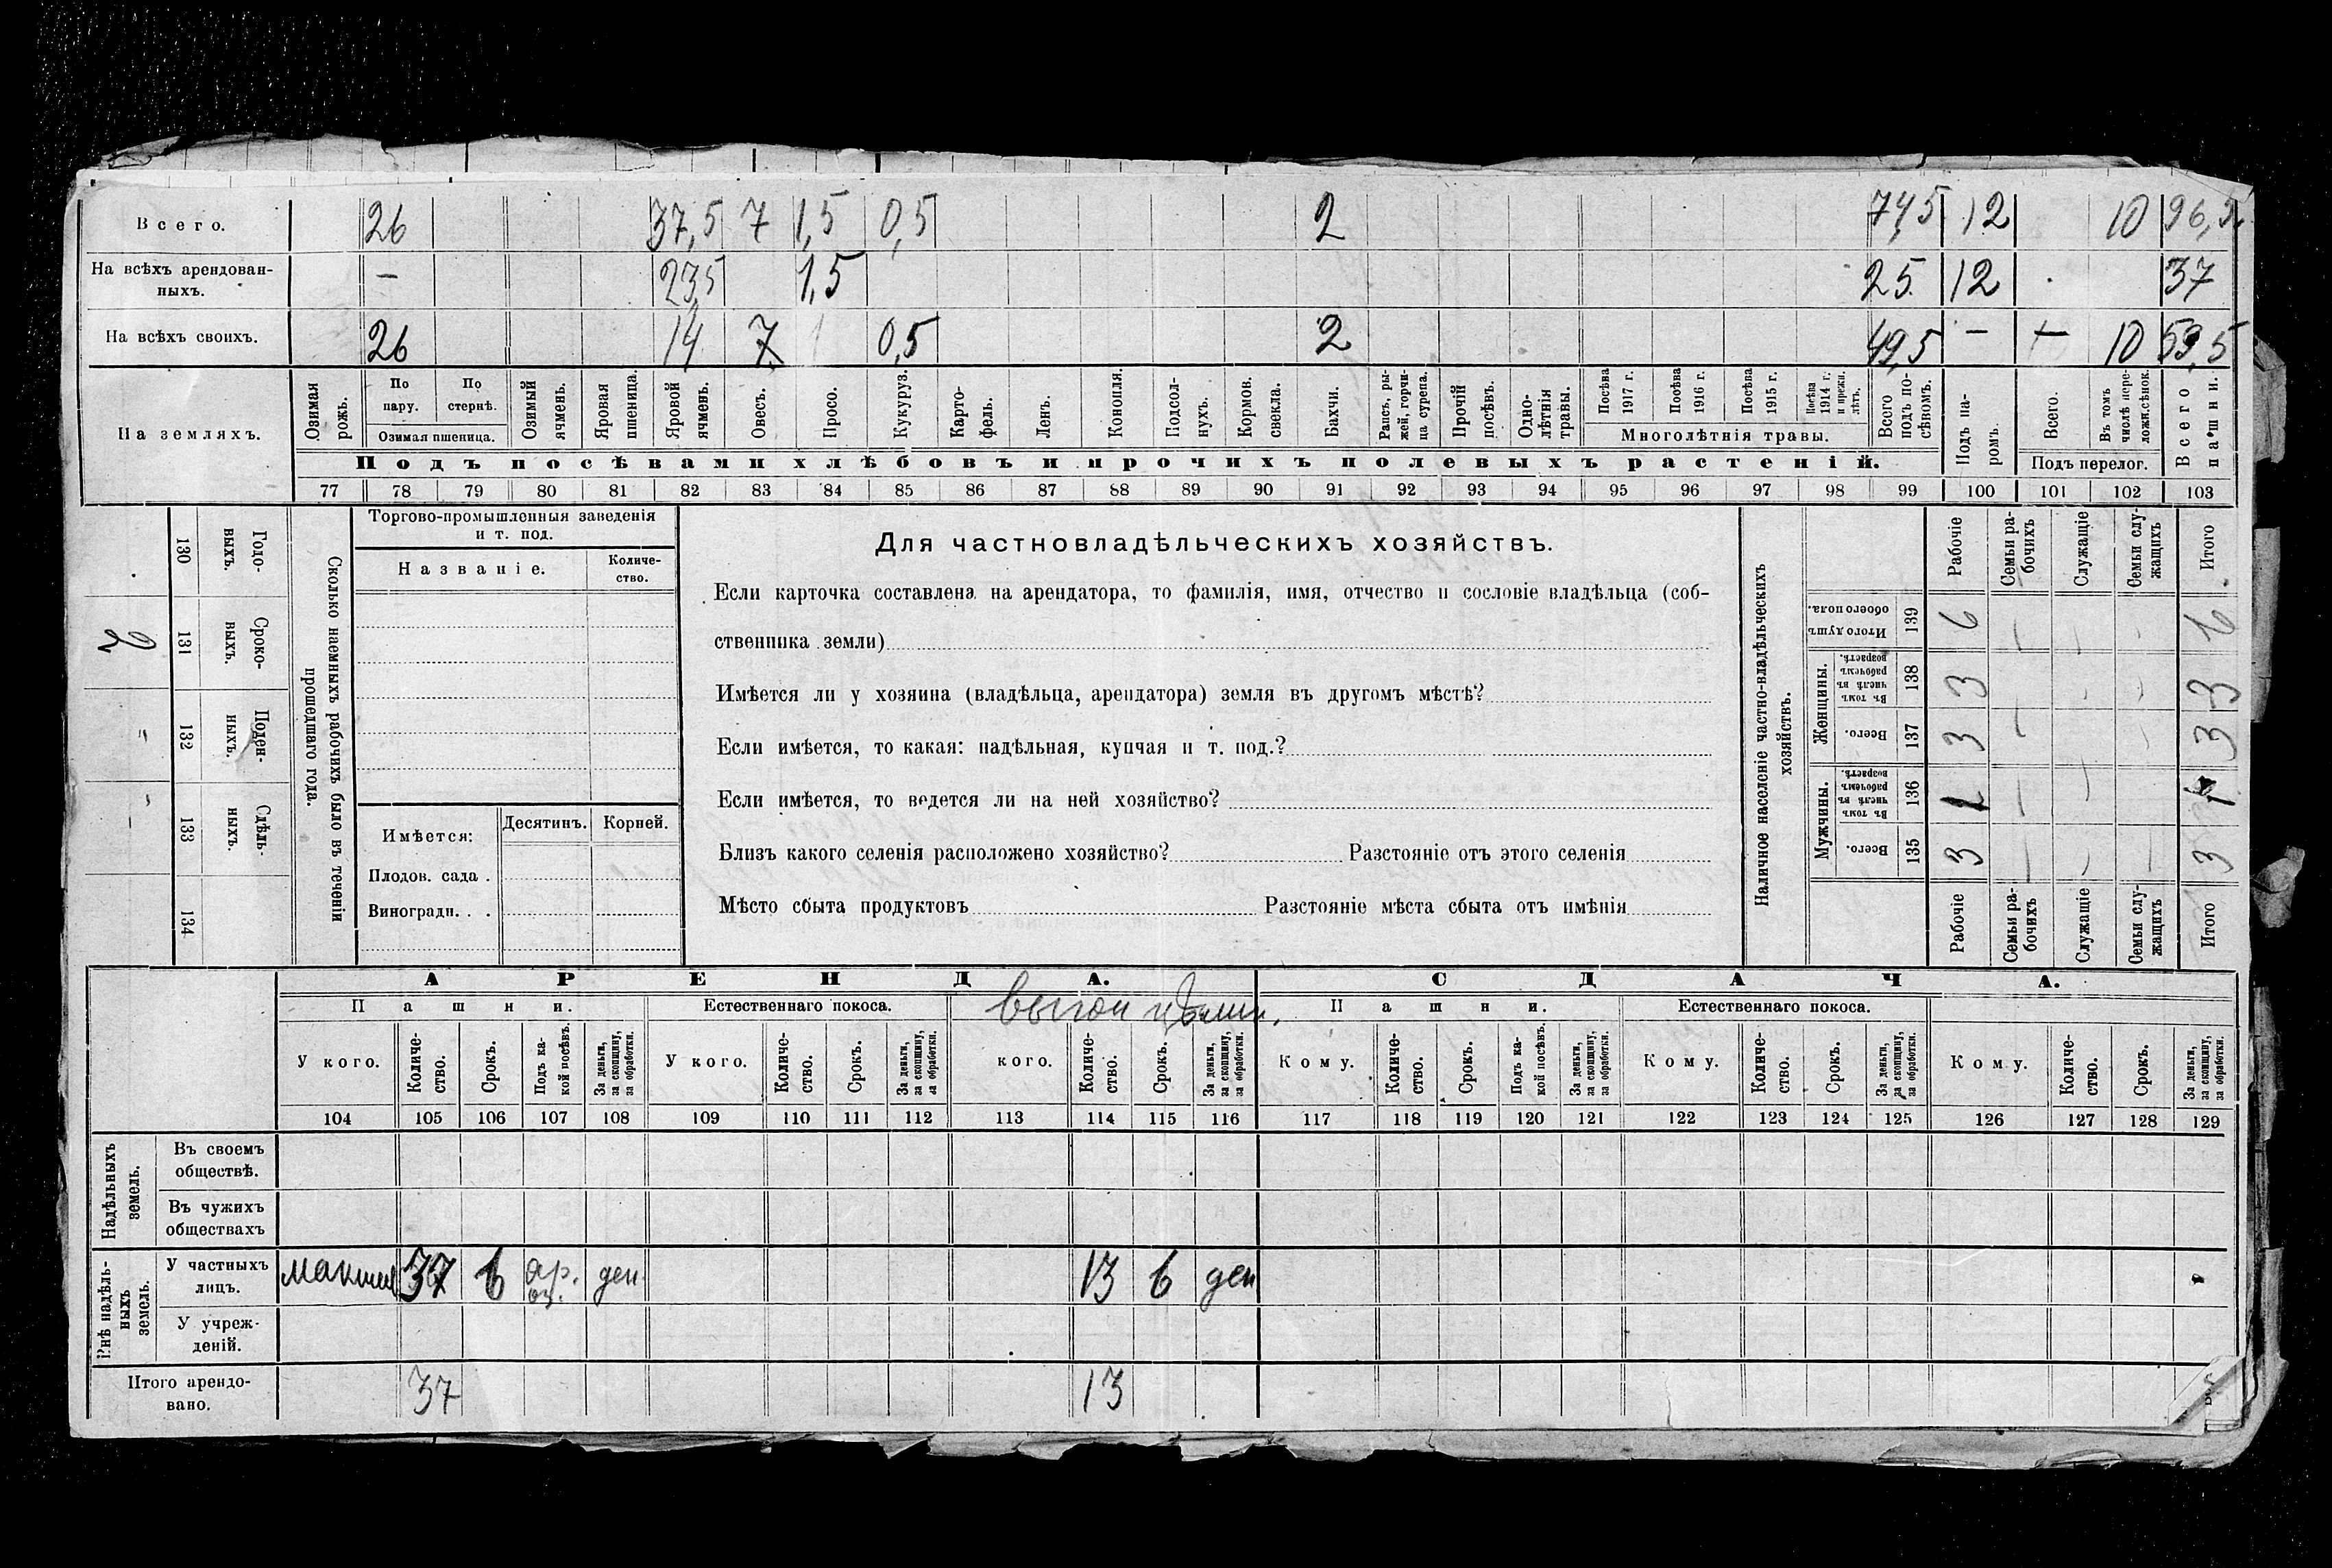 Всего. 26 37,5 7 1,5 0,5 2 74,5 12 10 96,5
На всѣхъ арендован-
ныхъ. — 23,5 1,5 25 12 37
На всѣхъ своихъ. 26 14 7 0,5 2 49,5 — 10 59,5
На земляхъ.
Озимая рожь.
По пару.
По стернѣ.
Озимая пшеница.
Озимый ячмень.
Яровая пшеница.
Яровой ячмень.
Овесъ.
Просо.
Кукуруз.
Карто-
фель.
Ленъ.
Конопля.
Подсол-
нухъ.
Кормов. свекла.
Бахчи.
Рапсъ, ры-
жей, горчи-
ца сурепа.
Прочій посѣвъ.
Одно-
лѣтнія травы.
Посѣва 1917 г.
Посѣва 1916 г.
Посѣва 1915 г.
Посѣва 1914 г. и прежн. лѣтъ.
Многолѣтнія травы.
Всего подъ по-
сѣвомъ.
Подъ па-
ромъ.
Всего.
Въ томъ числѣ пере-
ложн.сѣнок.
Подъ перелог.
Всего пашни.
Подъ посѣвами хлѣбовъ и прочихъ полевыхъ растеній.
77 78 79 80 81 82 83 84 85 86 87 88 89 90 91 92 93 94 95 96 97 98 99 100 101 102 103
Годо-
выхъ.
130
Сроко-
выхъ.
131
2
Поден-
ныхъ.
132
Сдѣль-
ныхъ.
133
134
Сколько наемныхъ рабочихъ было въ теченіи
прошедшаго года.
Торгово-промышленныя заведенія
и т. под.
Названіе.
Количе-
ство.
Имѣется:
Десятинъ.
Корней.
Плодов. сада .
Виноградн. . .
Для частновладѣльческихъ хозяйствъ.
Если карточка составлена на арендатора, то фамилія, имя, отчество и сословіе владѣльца (соб-
ственника земли)
Имѣется ли у хозяина (владѣльца, арендатора) земля въ другомъ мѣстѣ?
Если имѣется, то какая: надѣльная, купчая и т. под.?
Если имѣется, то ведется ли на ней хозяйство?
Близъ какого селенія расположено хозяйство? Разстояніе отъ этого селенія
Мѣсто сбыта продуктовъ Разстояніе мѣста сбыта отъ имѣнія
Наличное населеніе частно-владѣльческихъ
хозяйствъ.
Рабочіе
Семьи ра-
бочихъ
Служащіе
Семьи слу-
жащихъ
Итого
Итого душъ обоего пола. 139 6 6
Женщины.
Въ томъ числѣ въ рабочемъ возрастѣ. 138 3 3
Всего. 137 3 3
Мужчины.
Въ томъ числѣ въ рабочемъ возрастѣ. 136 1 1
Всего. 135 3 3
Рабочіе
Семьи ра-
бочихъ
Служащіе
Семьи слу-
жащихъ
Итого
АРЕНДА.
СДАЧА.
Пашни.
Естественнаго покоса.
выгон
Пашни.
Естественнаго покоса.
У кого.
Количе-
ство.
Срокъ.
Подъ ка-
кой посѣвъ.
За деньги,
за скопщину,
за обработки.
У кого.
Количе-
ство.
Срокъ.
За деньги,
за скопщину,
за обработки.
кого.
Количе-
ство.
Срокъ.
За деньги,
за скопщину,
за обработки.
Кому.
Количе-
ство.
Срокъ.
Подъ ка-
кой посѣвъ.
За деньги,
за скопщину,
за обработки.
Кому.
Количе-
ство.
Срокъ.
За деньги,
за скопщину,
за обработки.
Кому.
Количе-
ство.
Срокъ.
За деньги,
за скопщину,
за обработки.
104 105 106 107 108 109 110 111 112 113 114 115 116 117 118 119 120 121 122 123 124 125 126 127 128 129
Надѣльныхъ
земель.
Въ своемъ
обществѣ.
Въ чужихъ
обществахъ
Внѣ надѣль-
ныхъ
земель.
У частныхъ
лицъ. 37 6 яр. оз. ден 13 6 ден
У учреж-
деній.
Итого арендо-
вано. 37 13